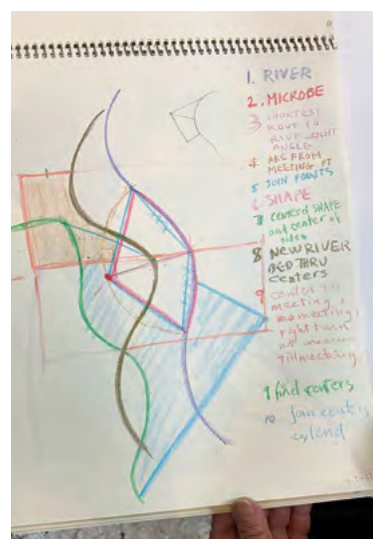 1. RIVER
2. MICROBE
3 SHORTEST
ROUT TO
RIVER RIGHT
ANGLE
4 ARC FROM
MEETING PT
5 JOIN POINTS
6 SHAPE
7 CENTER SHAPE
and center of
sides
8 NEW RIVER
BED THRU
centers
9
meeting,
right turn
till meeting
9 find centers
10 join centers
extend